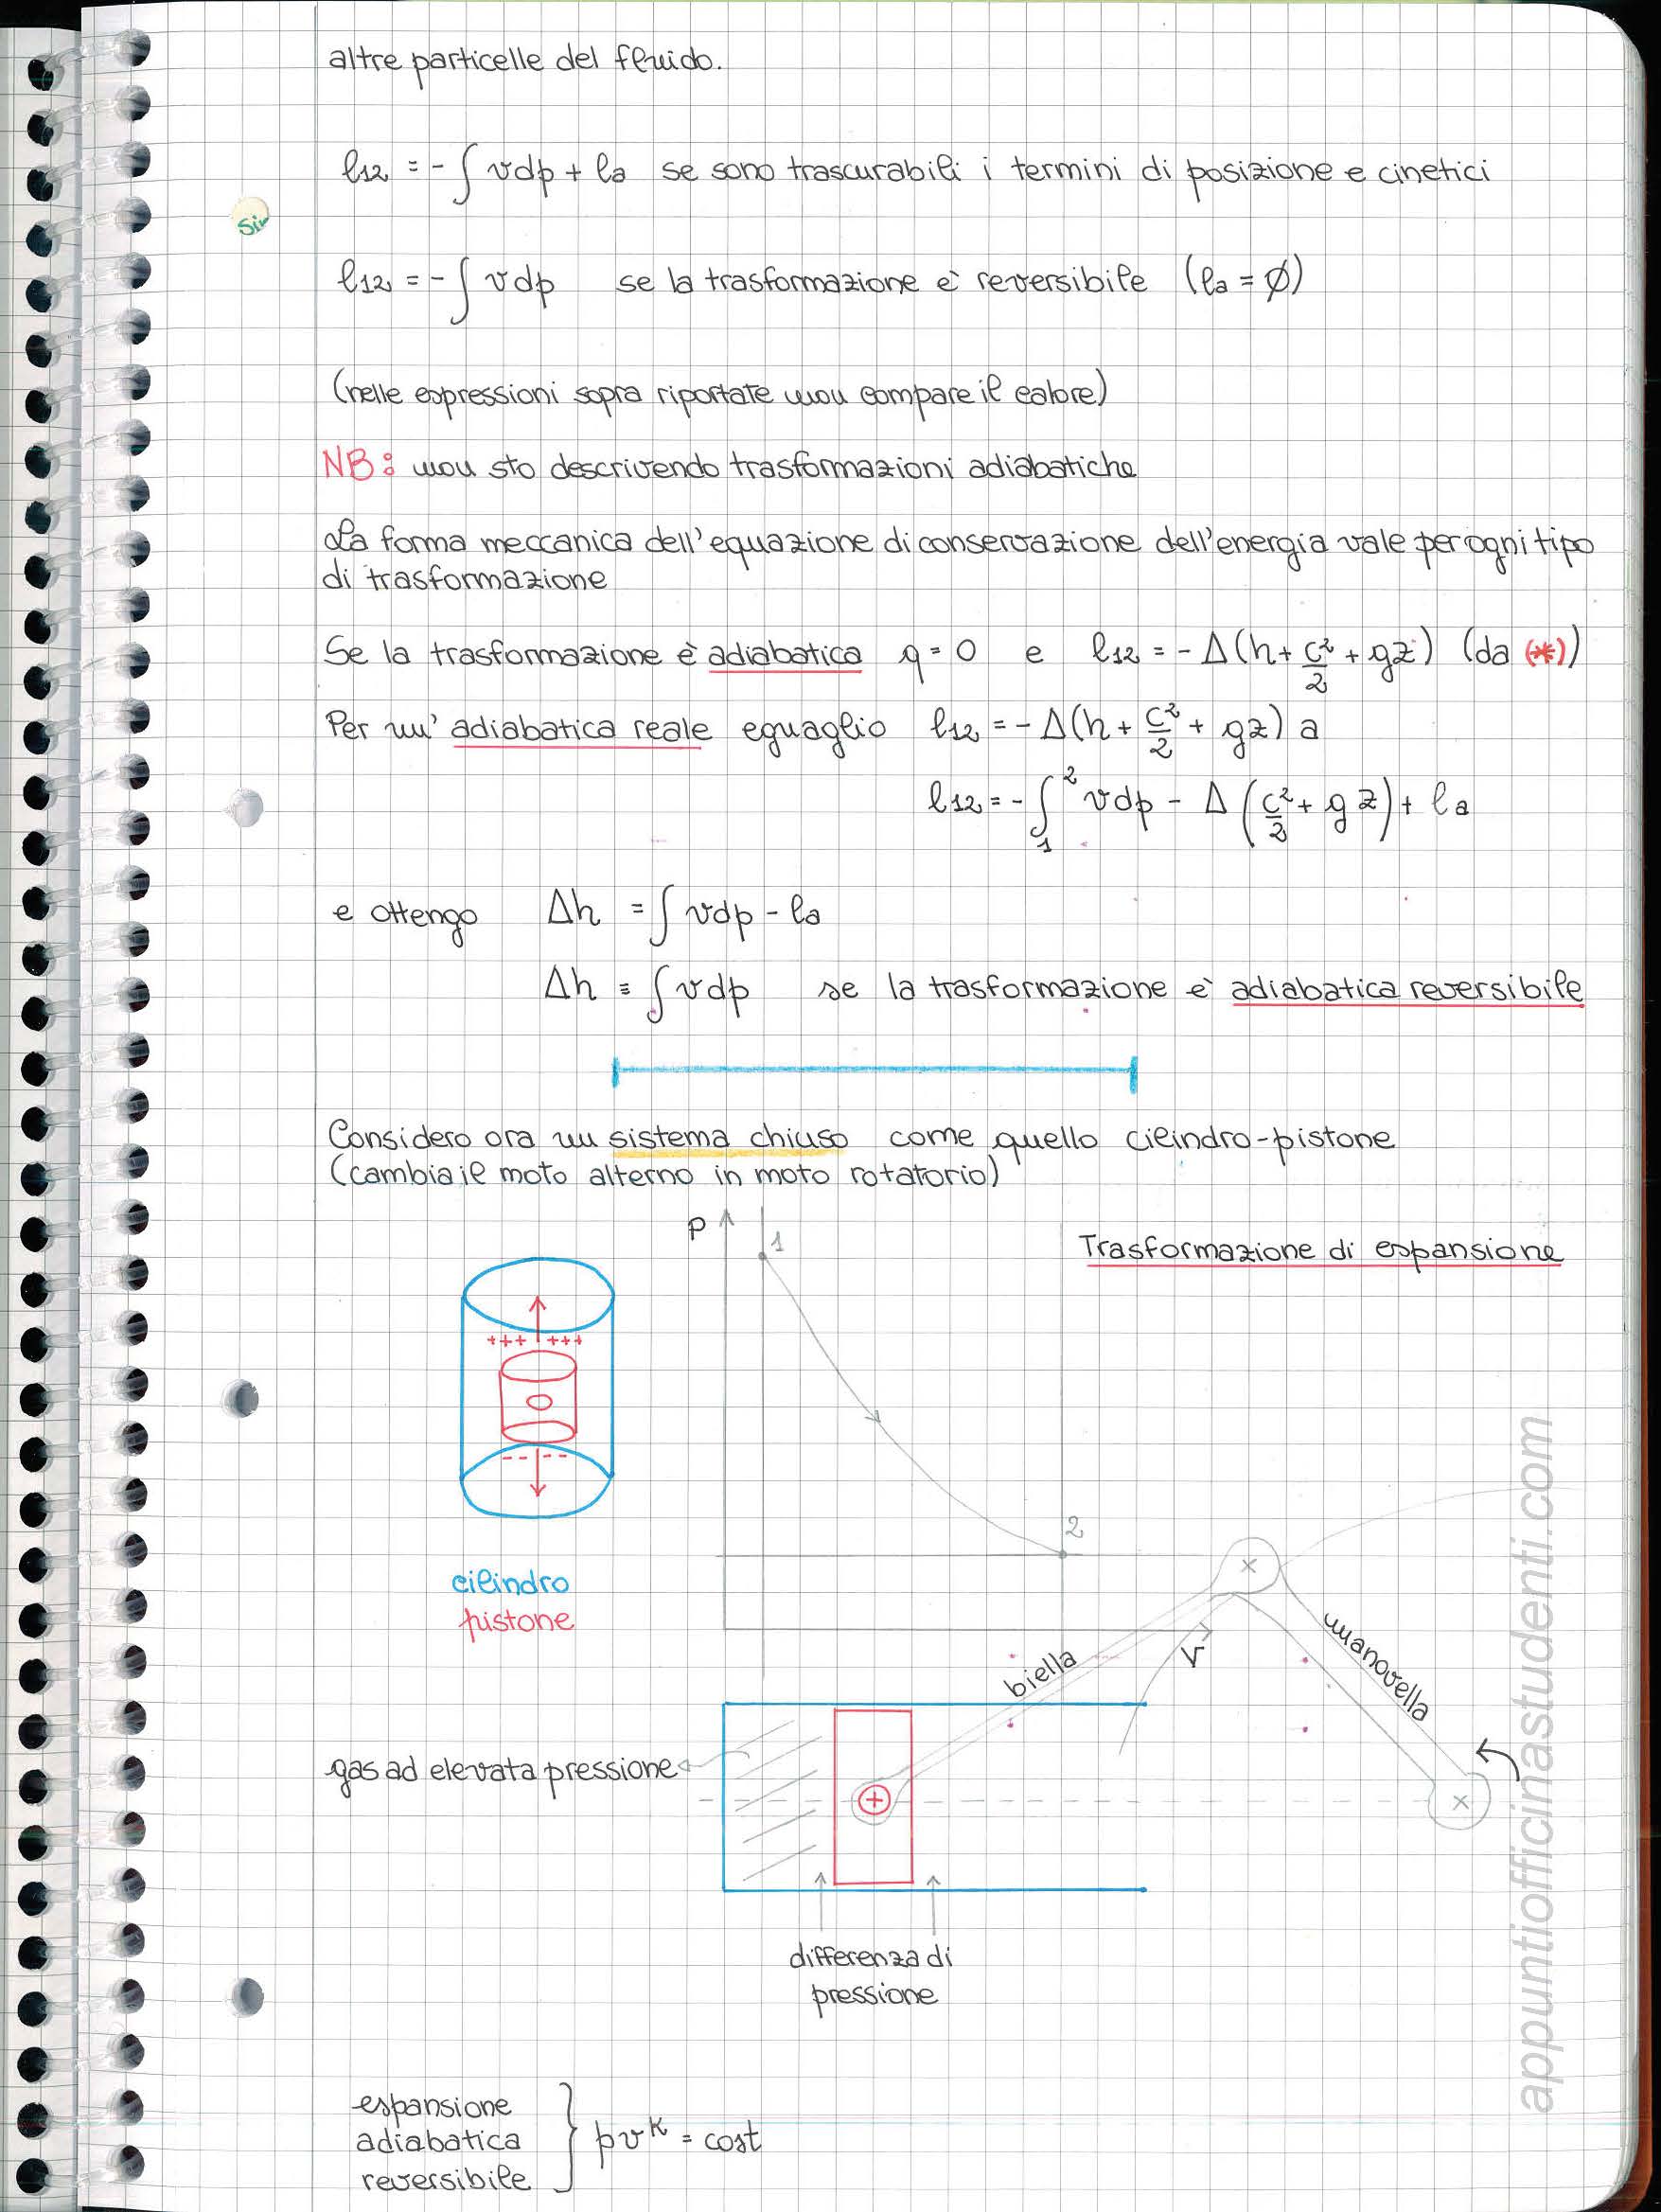 altre particelle del fluido.
l₁₂ = - ∫ vdp + la se sono trascurabili i termini di posizione e cinetici
l₁₂ = - ∫ vdp se la trasformazione è reversibile (la = Ø)
(nelle espressioni sopra riportate non compare il calore)
NB: non sto descrivendo trasformazioni adiabatiche
La forma meccanica dell'equazione di conservazione dell'energia vale per ogni tipo
di trasformazione
Se la trasformazione è adiabatica q = 0 e l₁₂ = - Δ(h + c²/2 + gz) (da (*))
Per un' adiabatica reale eguaglio l₁₂ = - Δ(h + c²/2 + gz) a
l₁₂ = - ∫₁² vdp - Δ(c²/2 + gz) + la
e ottengo Δh = ∫ vdp - la
Δh = ∫ vdp se la trasformazione è adiabatica reversibile
Considero ora un sistema chiuso come quello cilindro-pistone
(cambia il moto alterno in moto rotatorio)
P
1
Trasformazione di espansione
+++ +++
2
cilindro
pistone
V
biella
manovella
gas ad elevata pressione
differenza di
pressione
espansione
adiabatica
reversibile
pvᵏ = cost
appuntiofficinastudenti.com